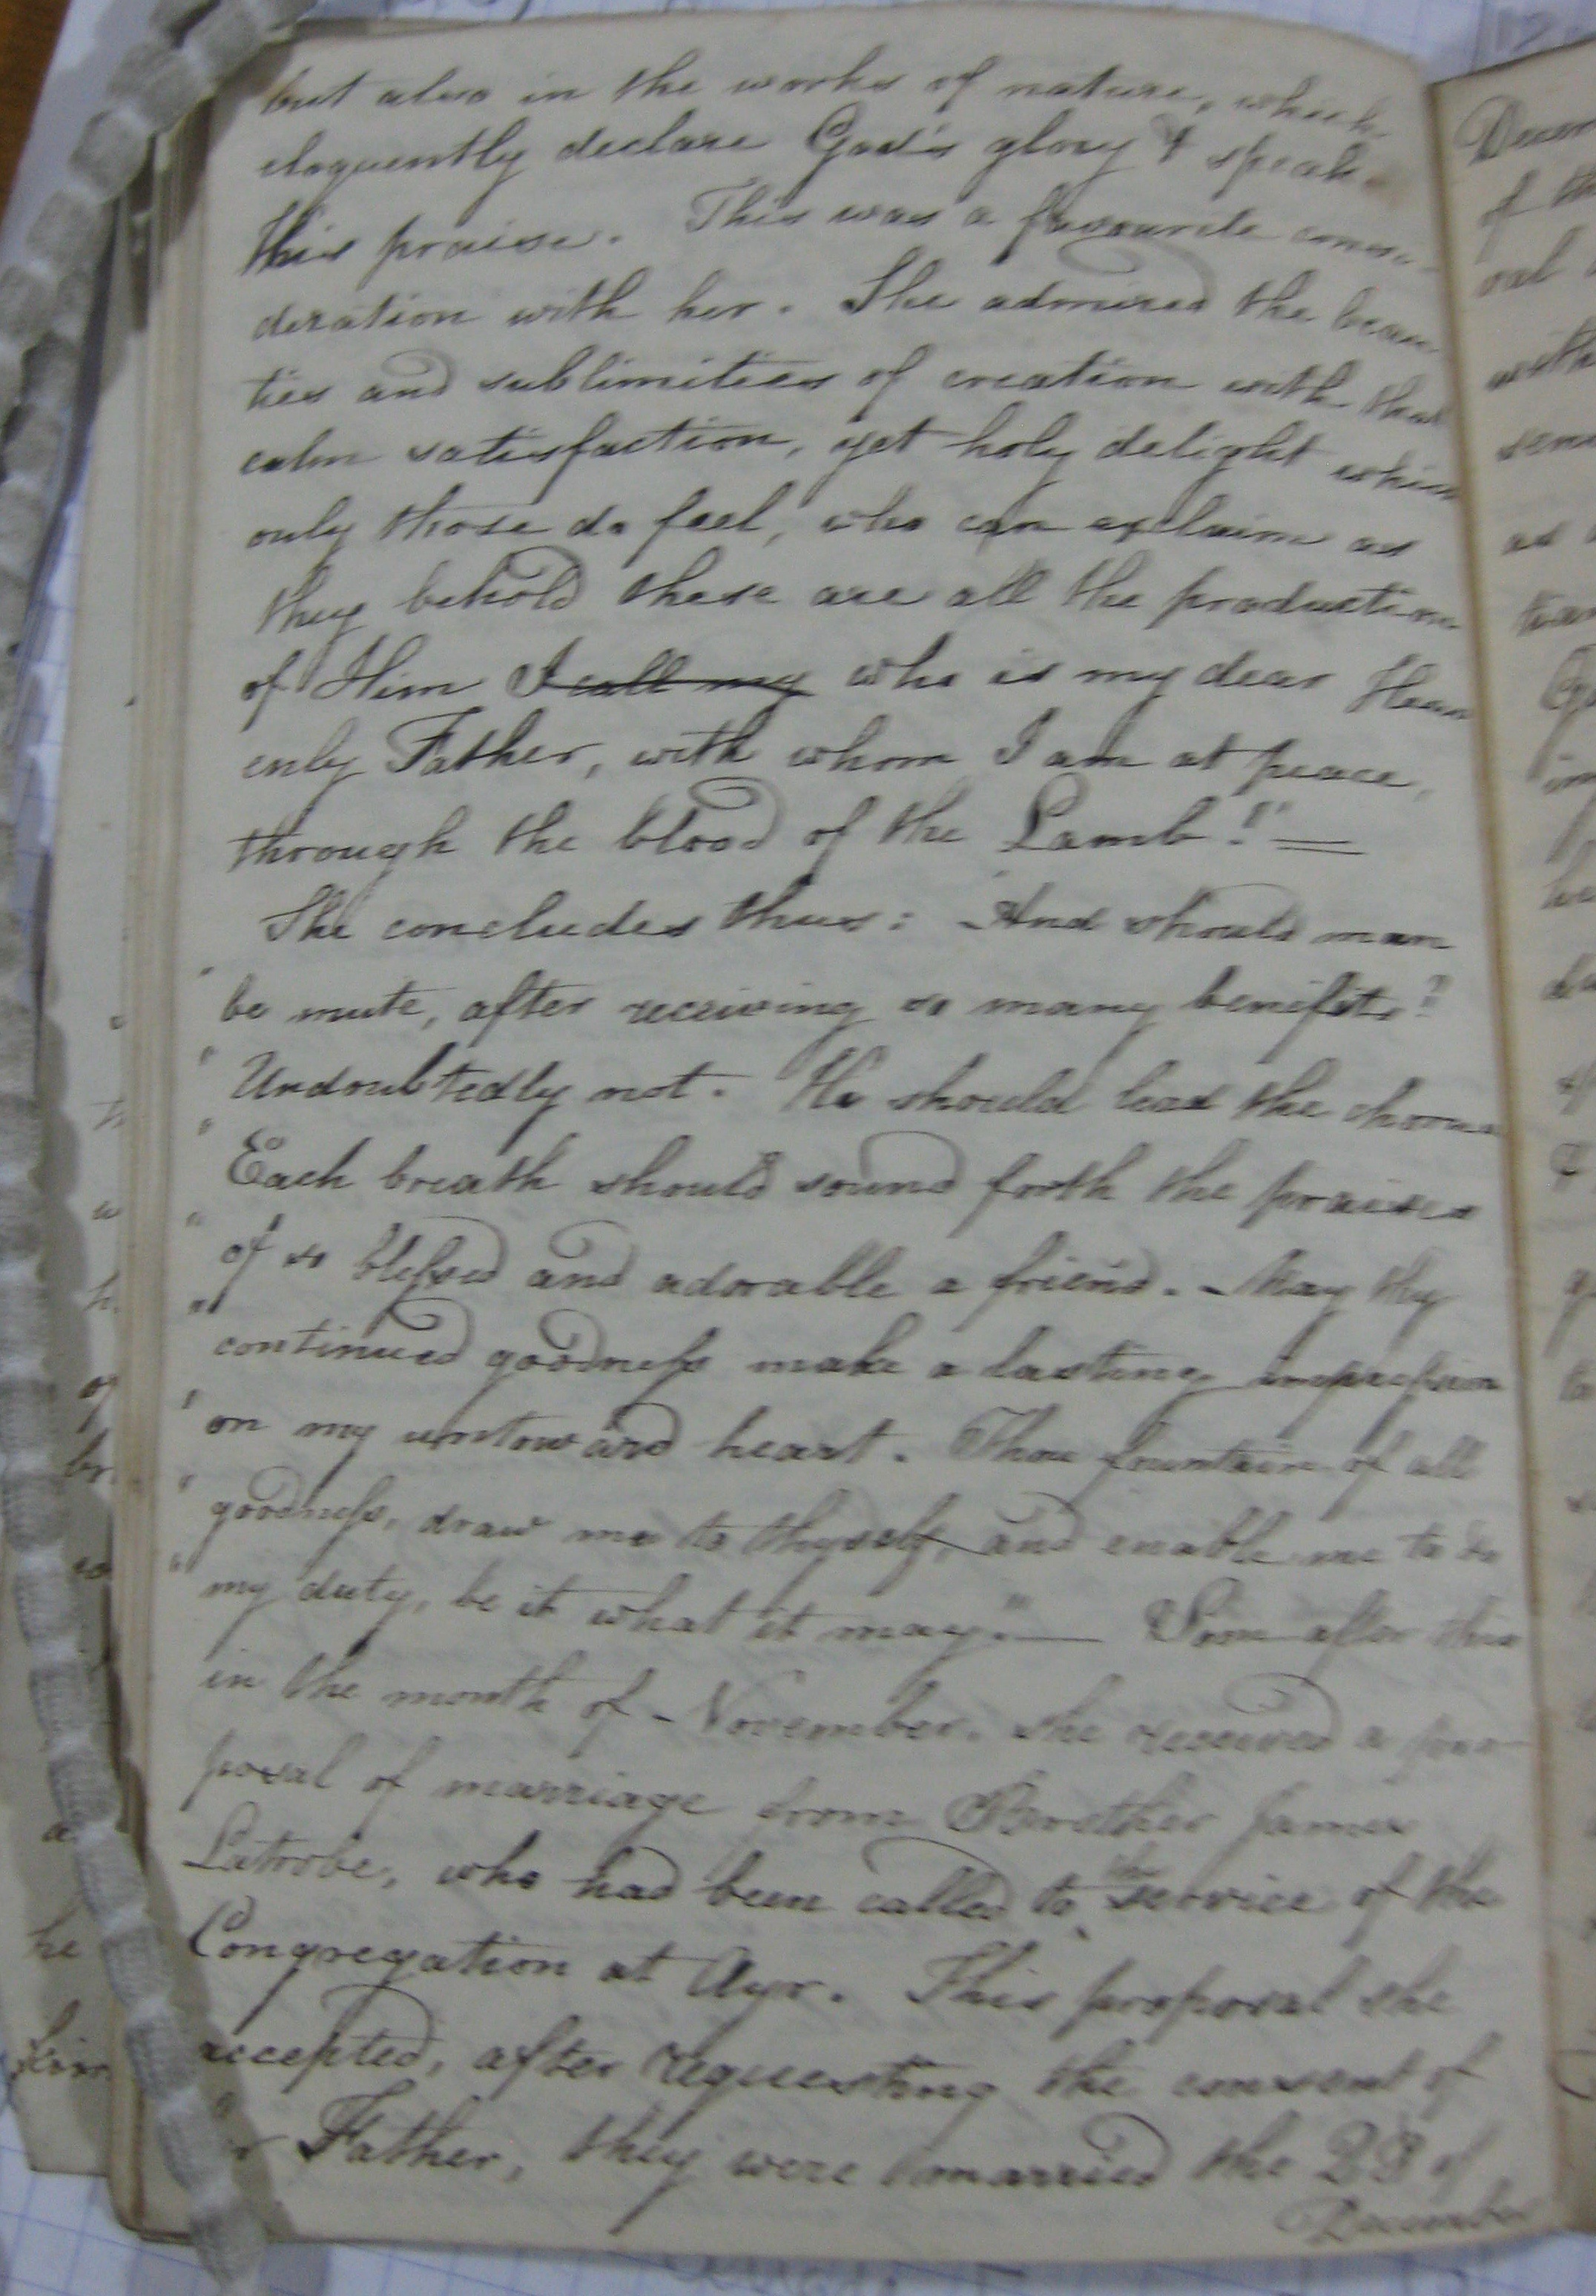 but also in the works of nature, which
eloquently declare God's glory & speak
this praise. This was a favourite consi-
deration with her. She admired the beau-
ties and sublimities of creation with that
calm satisfaction, yet holy delight which
only those do feel, who can exclaim as
they behold these are all the production
of Him I call my who is my dear Heav
enly Father, with whom I am at peace,
through the blood of the Lamb!" =
She concludes thus: And should man
" be mute, after receiving so many benefits?
" Undoubtedly not. He should lead the chorus
" Each breath should sound forth the praises
" of so blessed and adorable a friend. May thy
" continued goodness make a lasting impression
" on my untoward heart. Thou fountain of all
" goodness, draw me to thyself, and enable me to do
" my duty, be it what it may." — Soon after this
in the month of November, she received a pro-
posal of marriage from Brother James
Latrobe, who had been called to the service of the
Congregation at Ayr. This proposal she
accepted, after requesting the consent of
Father, they were married the of
December